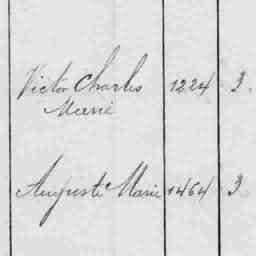 Victor Charles 1224 3.
Marie
Auguste Marie 1464 3